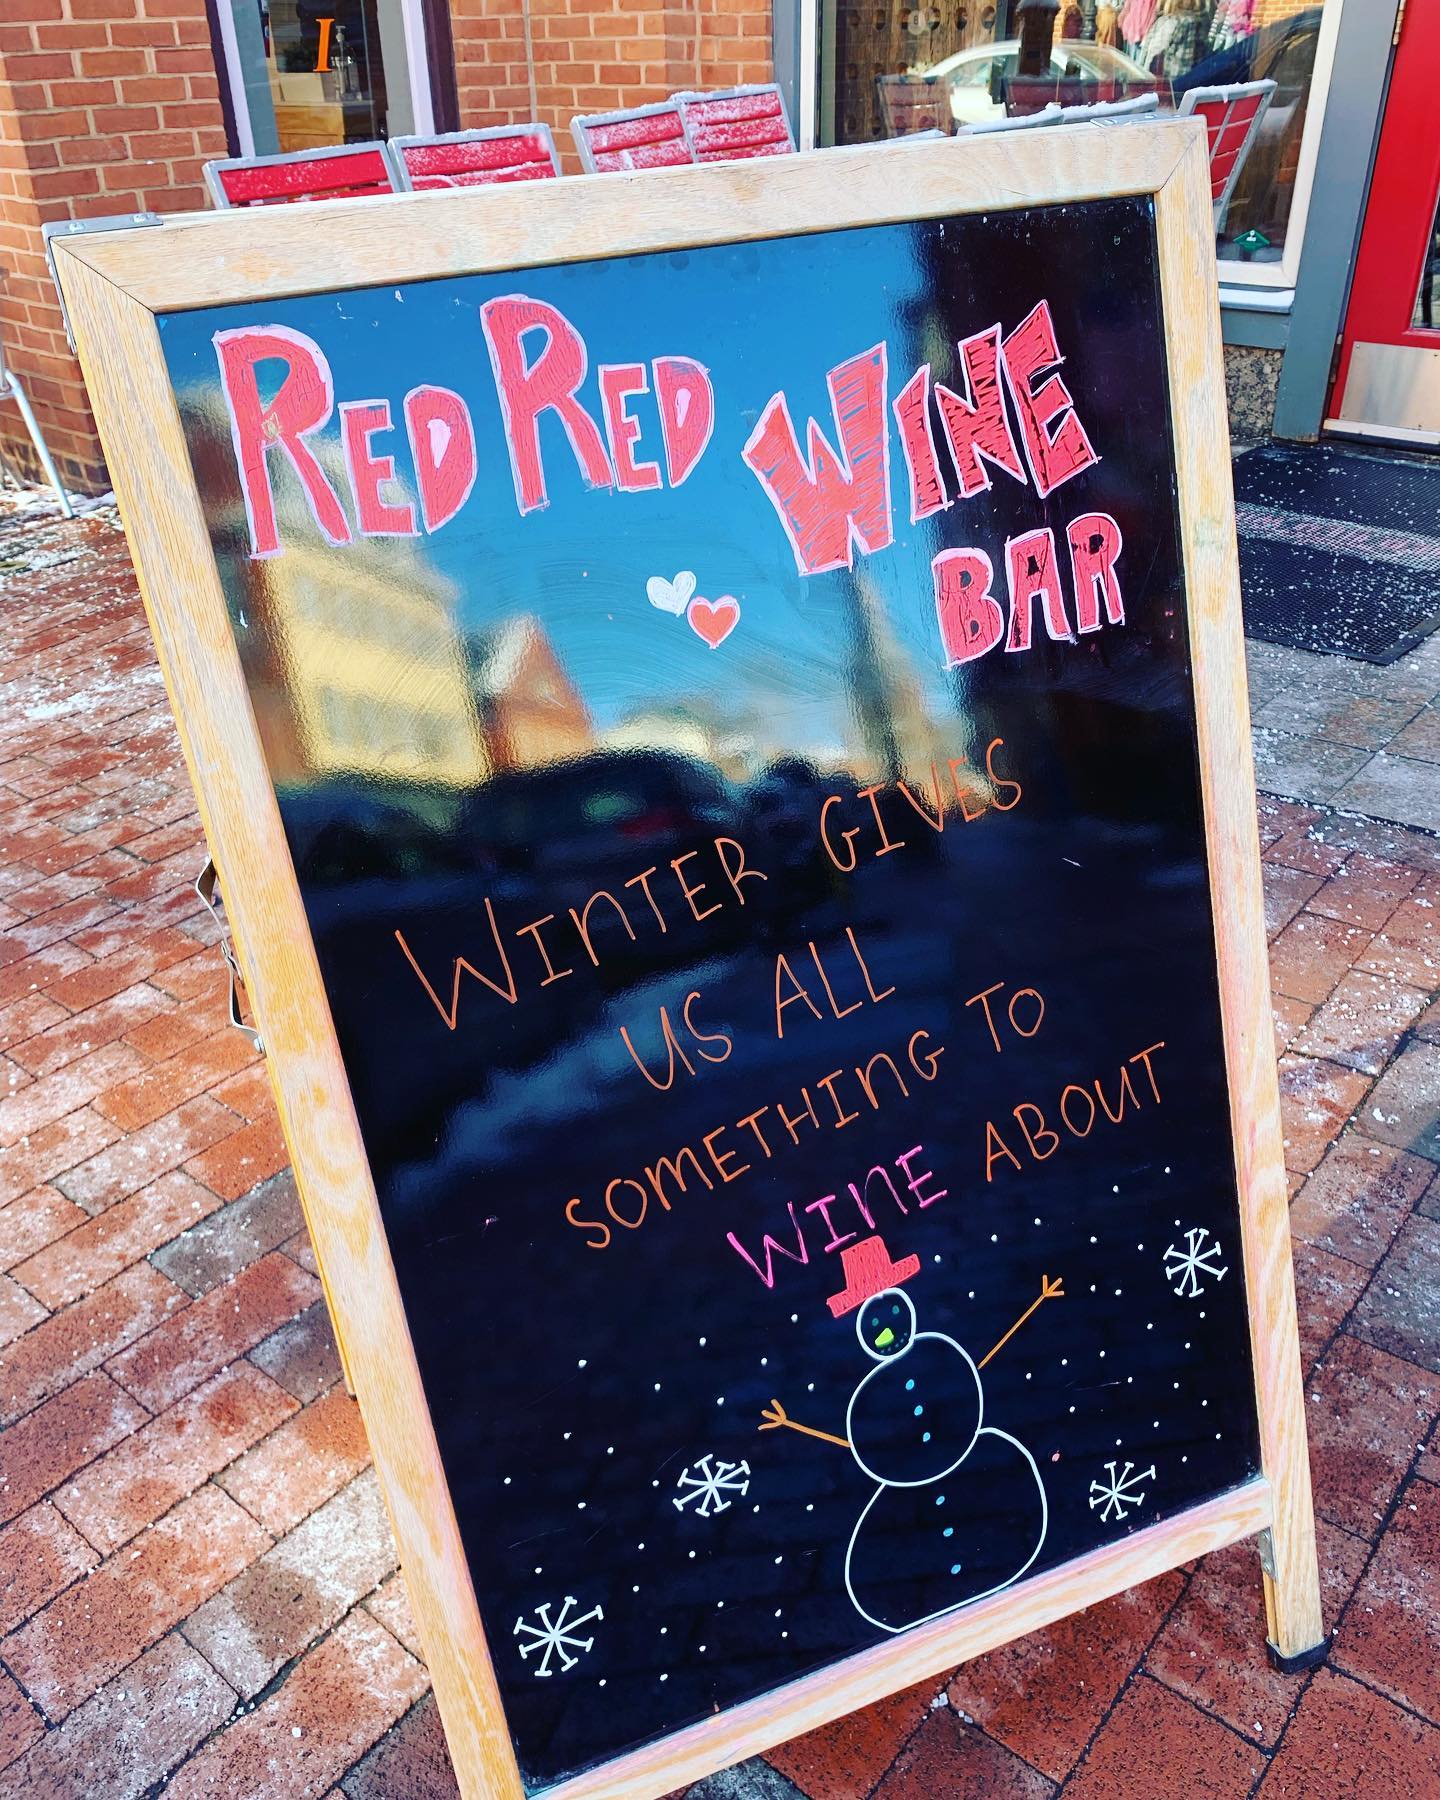 RED RED WINE
BAR
WINTER GIVES
US ALL
SOMETHING TO
WINE ABOUT